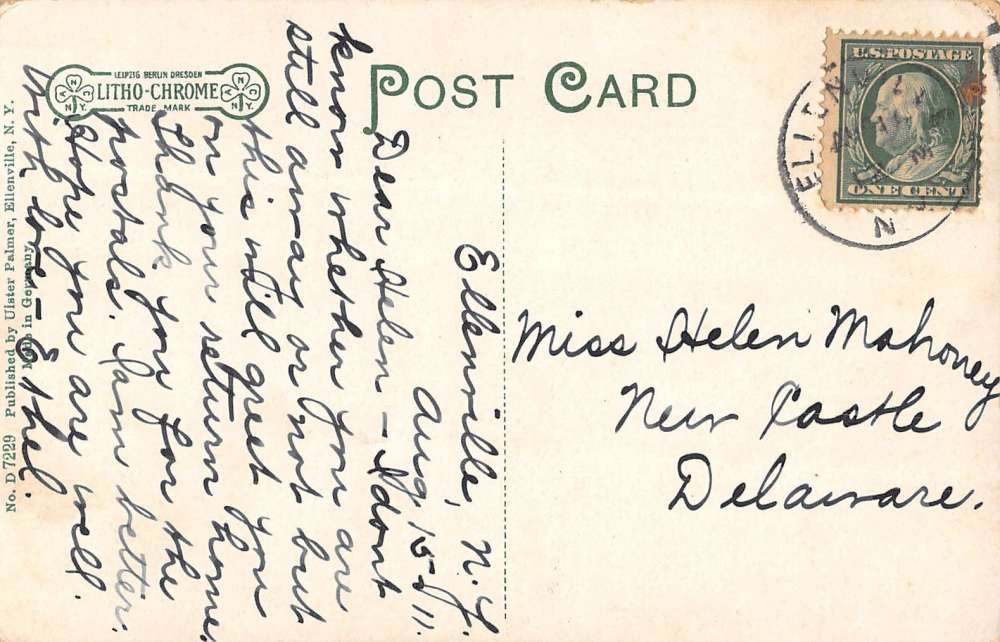 POST CARD
LEIPZIG BERLIN DRESDEN
LITHO-CHROME
TRADE MARK
No. D 7229 Published by Ulster Palmer, Ellenville, N. Y.
Made in Germany
U.S. POSTAGE
ONE CENT
Ellenville, N.Y.
Aug. 15-11.
Dear Helen - I dont
know whether you are
still away or not but
this will greet you
on your return home.
Thank you for the
postals. I am better.
Hope you are well.
With love - Ethel.
Miss Helen Mahoney
New Castle
Delaware.